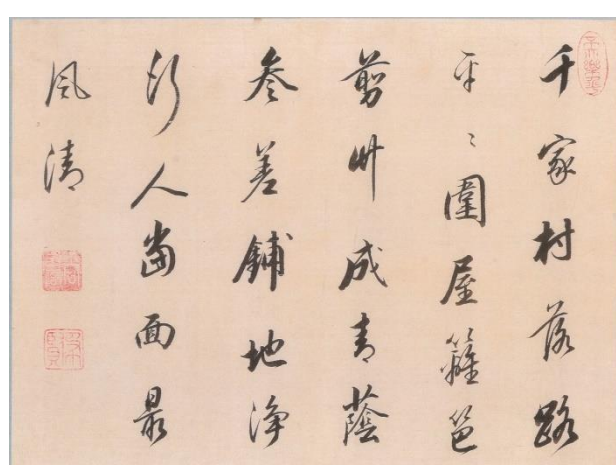 千家村落路
平〻圍屋籬笆
剪竹成青蔭
參差鋪地淨
行人當面最
風清